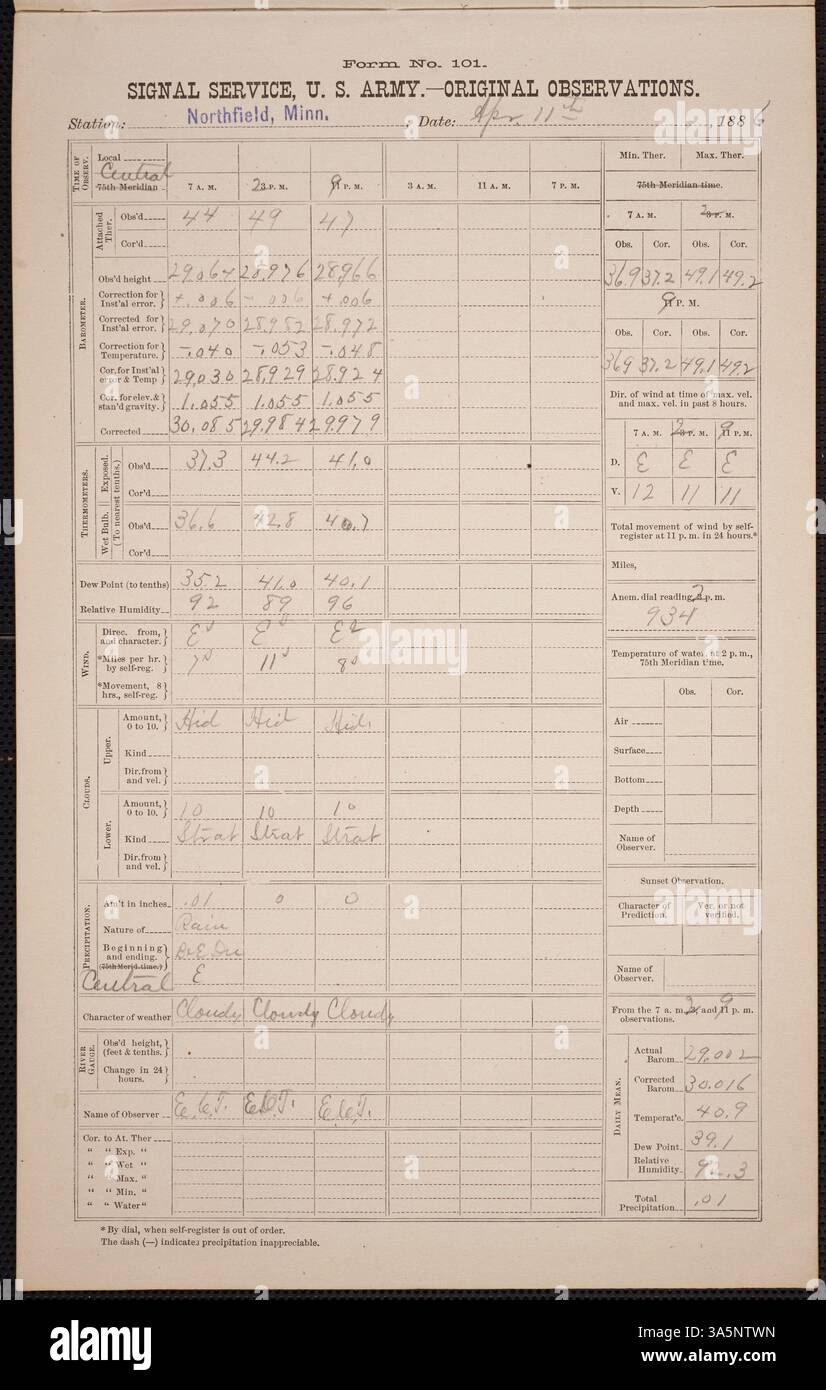 Form No. 101.
SIGNAL SERVICE, U. S. ARMY.—ORIGINAL OBSERVATIONS.
Station: Northfield, Minn. , Date: Apr 11th , 1886
TIME OF OBSERV.
Local
Central
75th Meridian 7 A. M. 2 3 P. M. 9 11 P. M. 3 A. M. 11 A. M. 7 P. M.
BAROMETER.
Attached Ther.
Obs'd 44 49 47
Cor'd
Obs'd height 29.064 28.976 28.966
Correction for Inst'al error. +.006 +.006 +.006
Corrected for Inst'al error. 29.070 28.982 28.972
Correction for Temperature. -.040 -.053 -.048
Cor. for Inst'al error & Temp 29.030 28.929 28.924
Cor. for elev. & stan'd gravity. 1.055 1.055 1.055
Corrected 30.085 29.984 29.979
THERMOMETERS.
Exposed.
Wet Bulb.
(To nearest tenths.)
Obs'd 37.3 44.2 41.0
Cor'd
Obs'd 36.6 42.8 40.7
Cor'd
Dew Point (to tenths) 35.2 41.0 40.1
Relative Humidity 92 89 96
WIND.
Direc. from, and character. E E E
*Miles per hr. by self-reg. 7 11 8
*Movement, 8 hrs., self-reg.
CLOUDS.
Upper.
Amount, 0 to 10. Hid Hid Hid
Kind
Dir. from and vel.
Lower.
Amount, 0 to 10. 10 10 10
Kind Strat Strat Strat
Dir. from and vel.
PRECIPITATION.
Am't in inches .01 0 0
Nature of Rain
Beginning and ending.
(75th Merid. time.)
Central E
Character of weather Cloudy Cloudy Cloudy
RIVER GAUGE.
Obs'd height, (feet & tenths.)
Change in 24 hours.
Name of Observer E.C.T. E.C.T. E.C.T.
Cor. to At. Ther
" " Exp. "
" " Wet "
" " Max. "
" " Min. "
" " Water "
*By dial, when self-register is out of order.
The dash (—) indicates precipitation inappreciable.
Min. Ther. Max. Ther.
75th Meridian time.
7 A. M. 2 3 P. M.
Obs. Cor. Obs. Cor.
36.9 37.2 49.1 49.2
9 11 P. M.
Obs. Cor. Obs. Cor.
36.9 37.2 49.1 49.2
Dir. of wind at time of max. vel. and max. vel. in past 8 hours.
7 A. M. 2 3 P. M. 9 11 P. M.
D. E E E
V. 12 11 11
Total movement of wind by self-register at 11 p. m. in 24 hours.*
Miles,
Anem. dial reading, 2 3 p. m.
934
Temperature of water at 2 p. m., 75th Meridian time.
Obs. Cor.
Air
Surface
Bottom
Depth
Name of Observer.
Sunset Observation.
Character of Prediction. Ver. or not verified.
Name of Observer.
From the 7 a. m., 2 3, and 9 11 p. m. observations.
DAILY MEAN.
Actual Barom 29.002
Corrected Barom 30.016
Temperat'e. 40.9
Dew Point 39.1
Relative Humidity 92.3
Total Precipitation .01
alamy
Image ID: 3A5NTWN
www.alamy.com